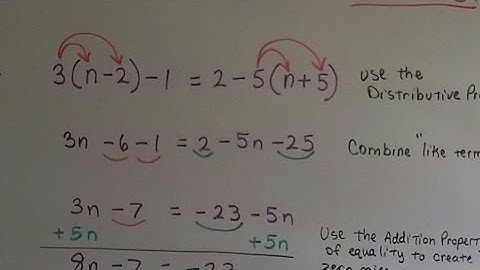 3(n-2)-1 = 2-5(n+5) Use the
Distributive
3n -6 -1 = 2 -5n -25 Combine "like
3n -7 = -23 -5n
+5n +5n
Use the Addition
of equality to create
8n -7 = -23